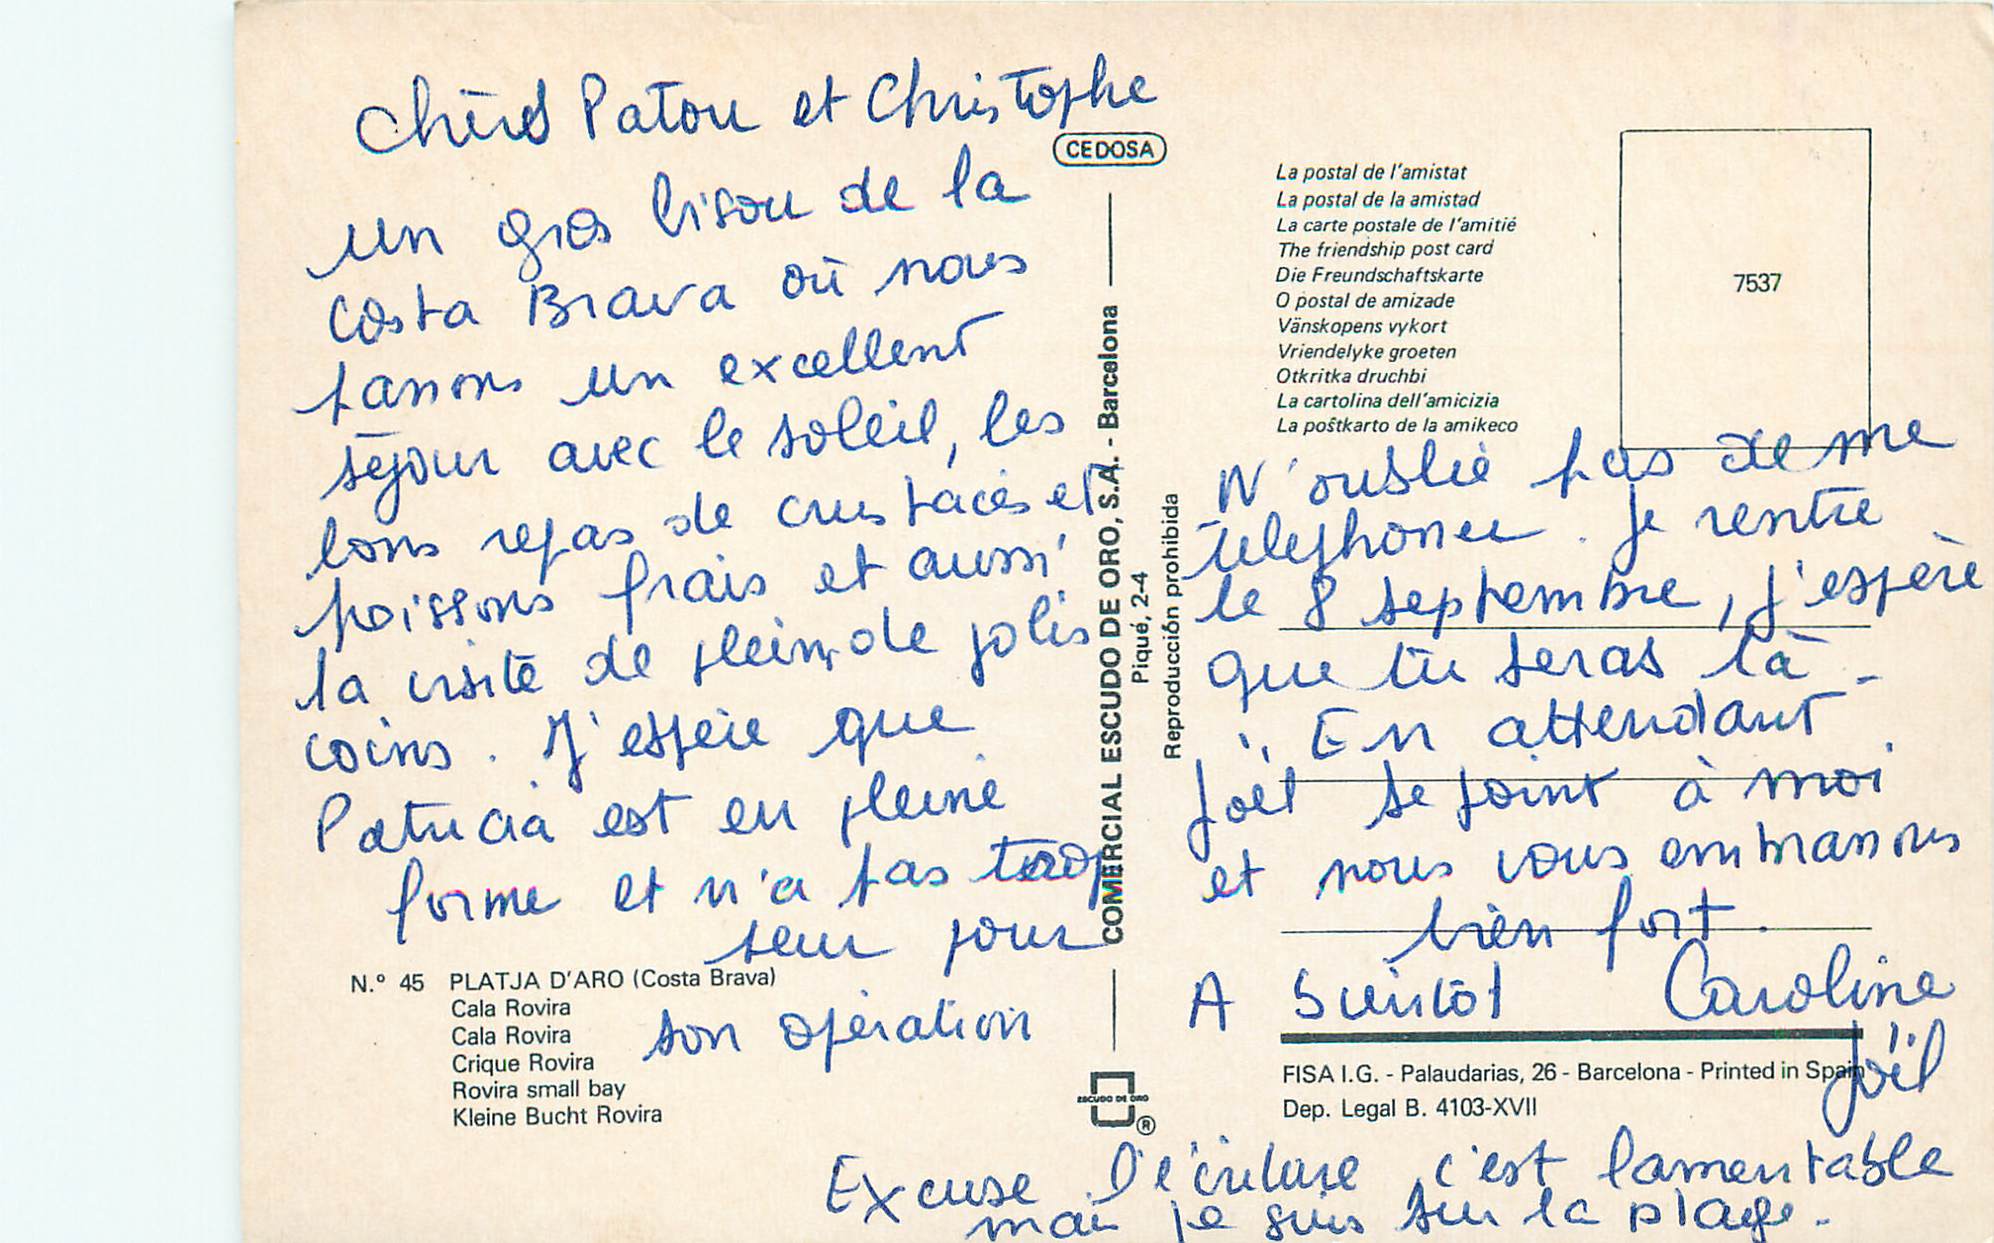 Chers Patou et Christophe
un gros bisou de la
Costa Brava où nous
passons un excellent
séjour avec le soleil, les
bons repas de crustacés et
poissons frais et aussi
la visite de pleins de jolis
coins. J'espère que
Patricia est en pleine
forme et n'a pas trop
pour
son opération
N.º 45 PLATJA D'ARO (Costa Brava)
Cala Rovira
Cala Rovira
Crique Rovira
Rovira small bay
Kleine Bucht Rovira
CEDOSA
COMERCIAL ESCUDO DE ORO, S.A. - Barcelona
Piqué, 2-4
Reproducción prohibida
ESCUDO DE ORO
®
La postal de l'amistat
La postal de la amistad
La carte postale de l'amitié
The friendship post card
Die Freundschaftskarte
O postal de amizade
Vänskopens vykort
Vriendelyke groeten
Otkritka druchbi
La cartolina dell'amicizia
La poŝtkarto de la amikeco
7537
N'oublie pas de me
telephoner. Je rentre
le 8 septembre, j'espère
que tu seras là -
En attendant
Joël se joint à moi
et nous vous embrassons
bien fort.
A bientôt Caroline
Joël
FISA I.G. - Palaudarias, 26 - Barcelona - Printed in Spain
Dep. Legal B. 4103-XVII
Excuse l'écriture, c'est lamentable
mais je suis sur la plage.